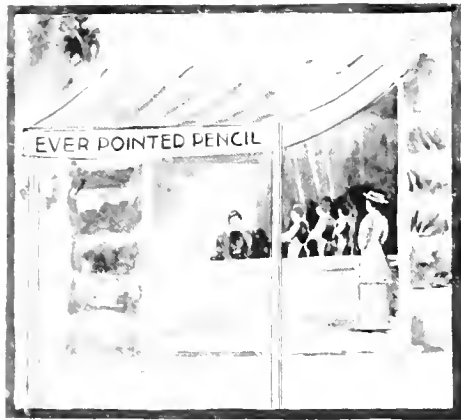 EVER POINTED PENCIL